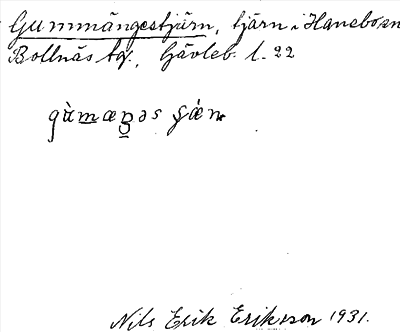 Gummängestjärn, tjärn i Hanebo sn
Bollnäs tg., Gävleb. l. 22
Nils Erik Eriksson 1931.